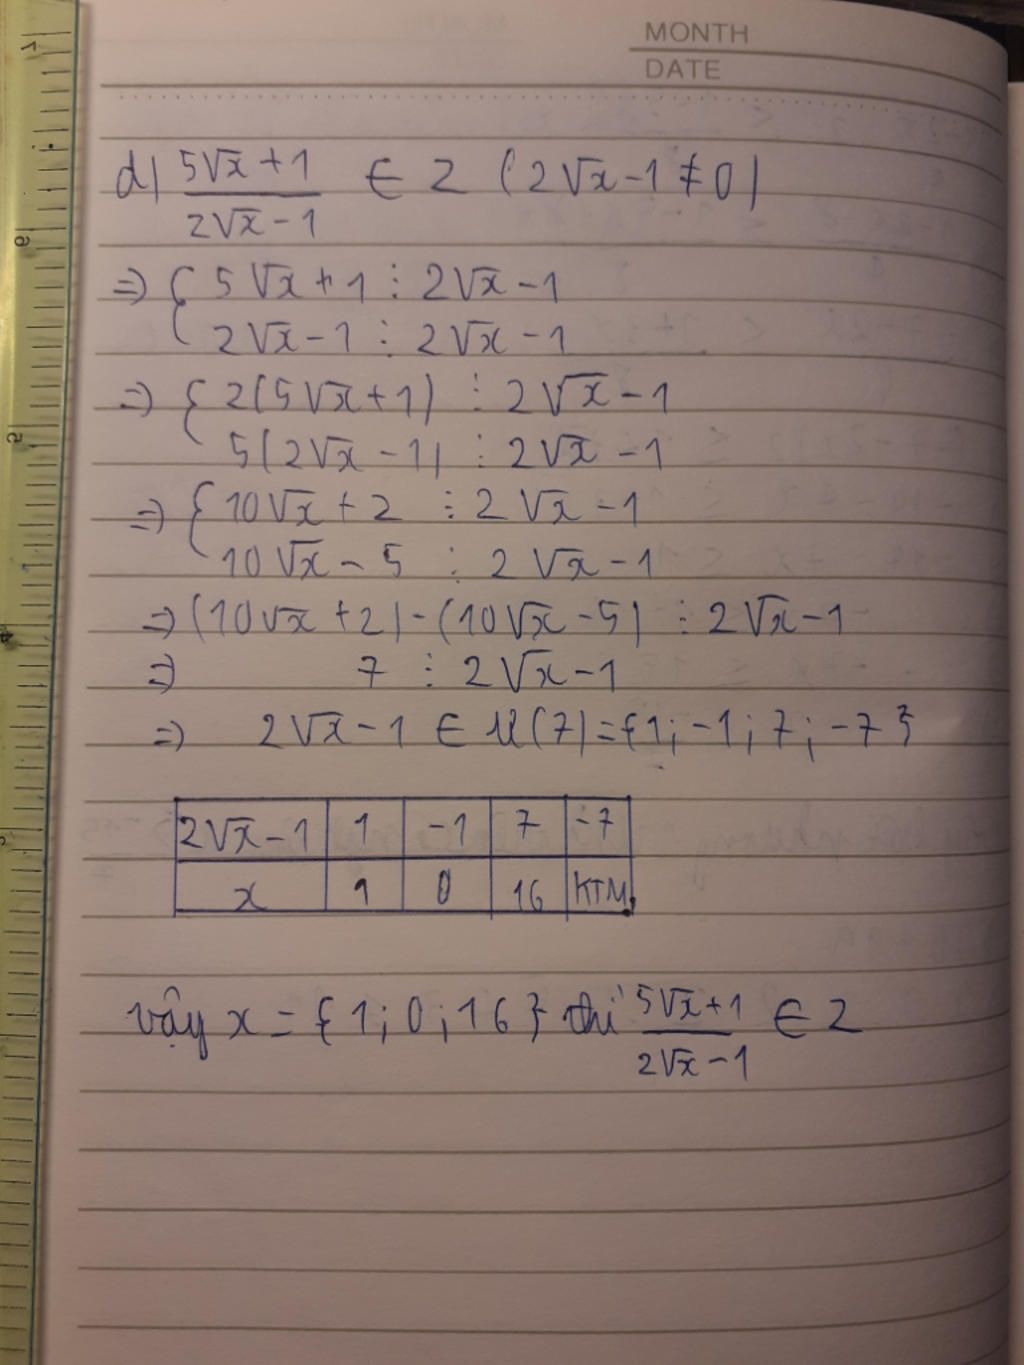 MONTH
DATE
d) (5√x + 1)/(2√x - 1) ∈ Z (2√x - 1 ≠ 0)
=> { 5√x + 1 ⋮ 2√x - 1
2√x - 1 ⋮ 2√x - 1
=> { 2(5√x + 1) ⋮ 2√x - 1
5(2√x - 1) ⋮ 2√x - 1
=> { 10√x + 2 ⋮ 2√x - 1
10√x - 5 ⋮ 2√x - 1
=> (10√x + 2) - (10√x - 5) ⋮ 2√x - 1
=> 7 ⋮ 2√x - 1
=> 2√x - 1 ∈ Ư(7) = {1; -1; 7; -7}
2√x - 1 | 1 | -1 | 7 | -7
x | 1 | 0 | 16 | KTM
vậy x = {1; 0; 16} thì (5√x + 1)/(2√x - 1) ∈ Z
7
6
5
4